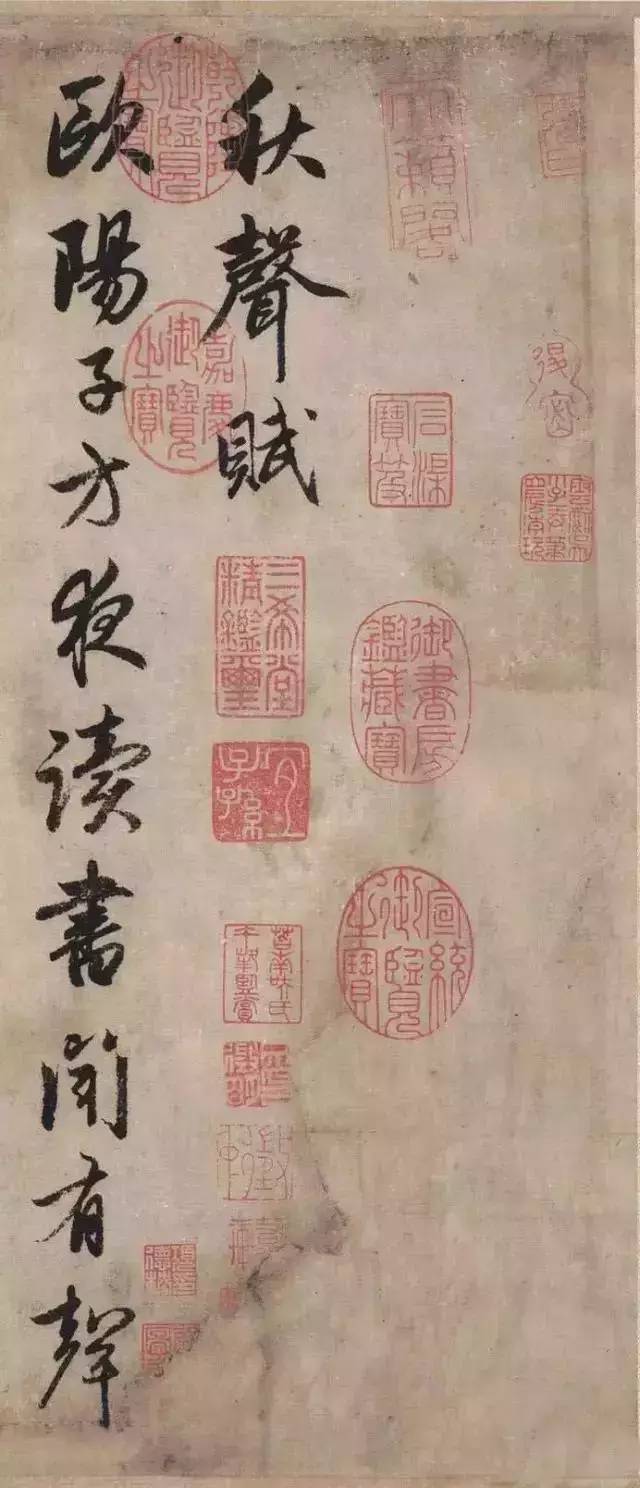 秋聲賦
歐陽子方夜读書聞有聲
天籟閣
石渠寶笈
御書房鑑藏寶
宣統御覽之寶
乾隆御覽之寶
嘉慶御覽之寶
三希堂精鑑璽
宜子孫